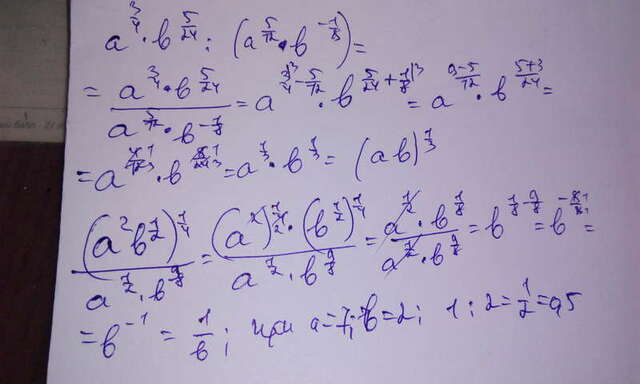 a^(3/4) · b^(5/24) : (a^(5/12) · b^(-1/8)) =
= (a^(3/4) · b^(5/24))/(a^(5/12) · b^(-1/8)) = a^(3/4 - 5/12) · b^(5/24 + 1/8) = a^((9-5)/12) · b^((5+3)/24) =
= a^(4/12) · b^(8/24) = a^(1/3) · b^(1/3) = (ab)^(1/3)
(a² b^(1/2))^(1/4)/(a^(1/2) · b^(9/8)) = (a²)^(1/4) · (b^(1/2))^(1/4)/(a^(1/2) · b^(9/8)) = (a^(1/2) · b^(1/8))/(a^(1/2) · b^(9/8)) = b^(1/8 - 9/8) = b^(-8/8) =
= b^(-1) = 1/b; при b = 2; 1 : 2 = 1/2 = 0,5